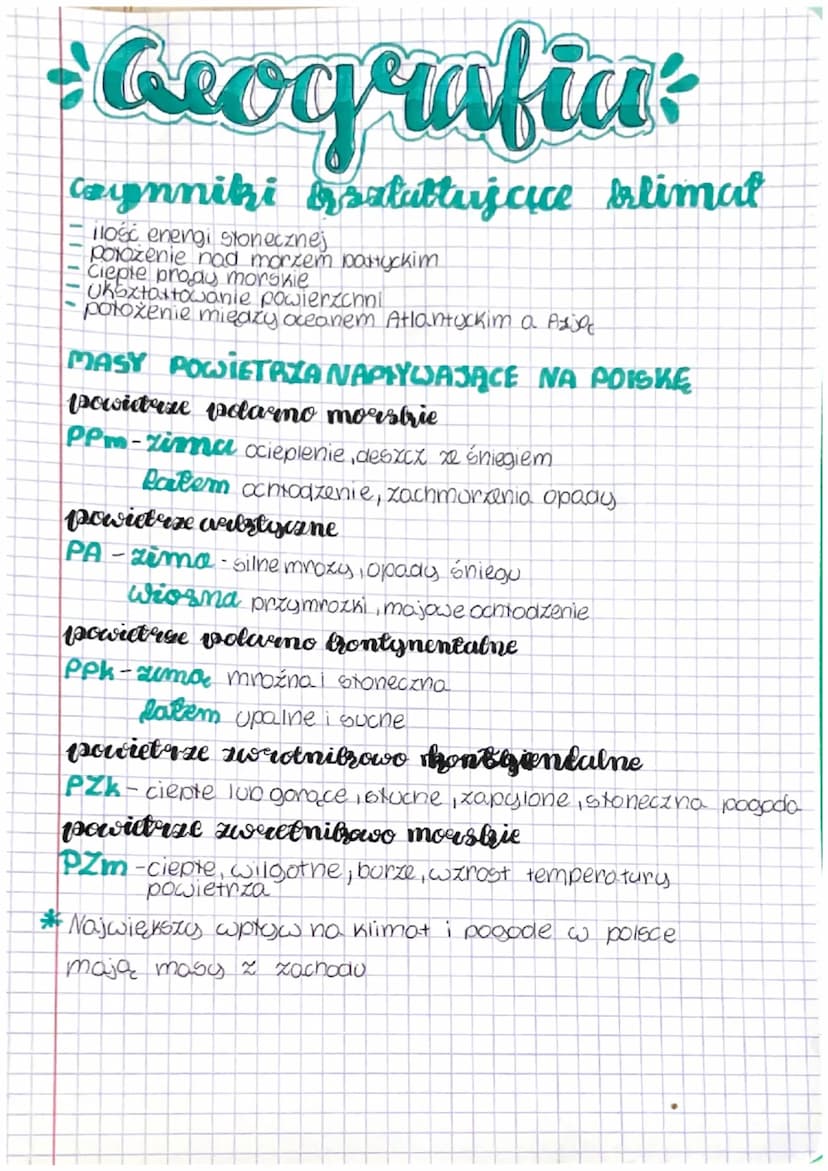 Geografia
czynniki kształtujące klimat
- ilość energi słonecznej
- położenie nad morzem bałtyckim
- ciepłe prądy morskie
- ukształtowanie powierzchni
- położenie między oceanem Atlantyckim a Azją
MASY POWIETRZA NAPŁYWAJĄCE NA POLSKĘ
powietrze polarno morskie
PPm - zima ocieplenie, deszcz ze śniegiem
latem ochłodzenie, zachmurzenia opady
powietrze arktyczne
PA - zima - silne mrozy, opady śniegu
wiosna przymrozki, majowe ochłodzenie
powietrze polarno kontynentalne
PPk - zimą mroźna i słoneczna
latem upalne i suche
powietrze zwrotnikowo
PZk - ciepłe lub gorące, suche, zapylone, słoneczna pogoda
powietrze zwrotnikowo morskie
PZm - ciepłe, wilgotne, burze, wzrost temperatury
powietrza
* Największy wpływ na klimat i pogode w polsce
mają masy z zachodu